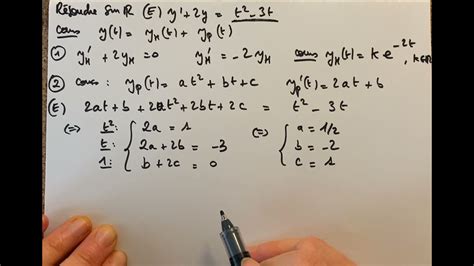 Résoudre sur ℝ (E) y' + 2y = t² - 3t
Cours y(t) = y_H(t) + y_P(t)
① y_H' + 2y_H = 0 y_H' = -2y_H Cours y_H(t) = k e^{-2t}, k∈ℝ
② Cours : y_P(t) = at² + bt + c y_P'(t) = 2at + b
(E) 2at + b + 2at² + 2bt + 2c = t² - 3t
⇔ t² : { 2a = 1 ⇔ { a = 1/2
t : { 2a + 2b = -3 { b = -2
1 : { b + 2c = 0 { c = 1